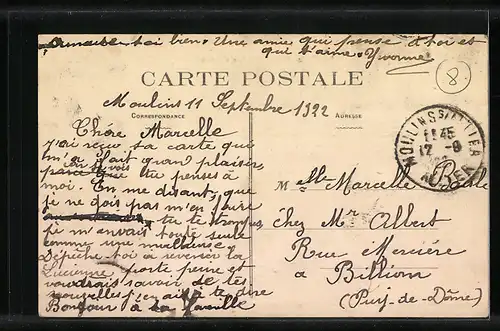 Amuse toi bien. Une amie qui pense à toi et
qui t'aime. Yvonne
8
CARTE POSTALE
Moulins 11 Septembre 1922
CORRESPONDANCE
ADRESSE
Chére Marcelle
J'ai reçu ta carte qui
m'a fait grand plaisir,
parce que tu penses à
moi. En me disant, que
je ne dois pas m'en faire
tu te trompes,
je m'ennuis toute seule
comme une malheureuse
Dépêche toi à revenir la
Lucienne porte peine et
voudrais savoir de tes
nouvelles
Bonjour à ta famille
MOULINS S/ALLIER
45
12 - 9
ALLIER
Melle Marcelle
chez Mr Albert
Rue Mercière
à Billom
(Puy-de-Dôme)